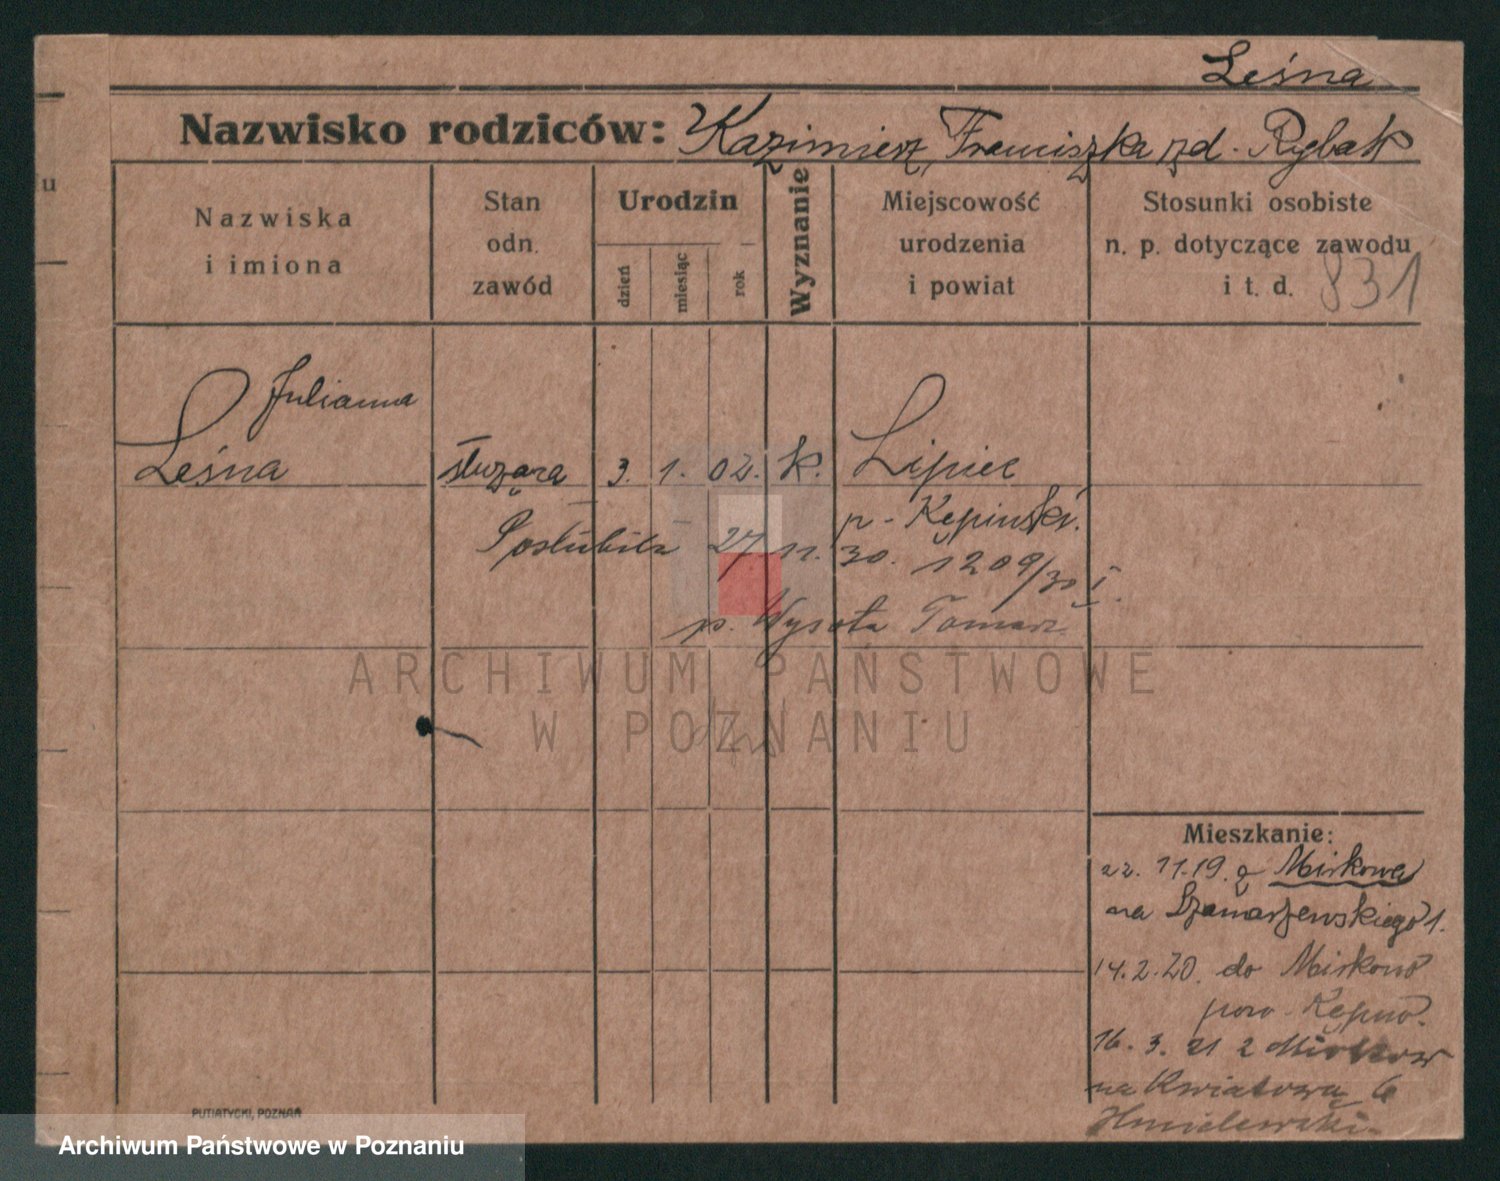 Leśna
Nazwisko rodziców: Kazimierz, Franciszka zd. Rybak
u
Nazwiska
i imiona
Stan
odn.
zawód
Urodzin
dzień
miesiąc
rok
Wyznanie
Miejscowość
urodzenia
i powiat
Stosunki osobiste
n. p. dotyczące zawodu
i t. d. 831
Julianna
Leśna służąca 3. 1. 02. k. Lipiec
p. Kępiński.
Poślubiła 27 11. 30. 1209/30 I.
p. Wysota Tomasz
ARCHIWUM PAŃSTWOWE
W POZNANIU
Mieszkanie:
22. 11.19. z Mirkowa
na Szamarzewskiego 1.
14.2.20. do Mirkowo
pow. Kępno.
16. 3. 21 z Mirkow
na Kwiatową 6
Hmielewski
PUTIATYCKI, POZNAŃ
Archiwum Państwowe w Poznaniu